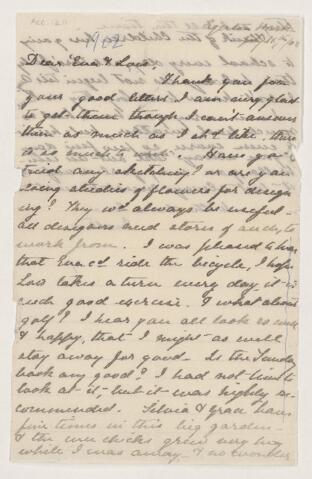 1902
Dear Eva & Lois,
Thank you for
your good letters I am very glad
to get them though I can't answer
them as much as I sh'd like, there
is so much to do. Have you
tried any sketching? or are you
doing studies of flowers for design
ing? They w'd always be useful -
all designers need stores of such, to
work from. I was pleased to hear
that Eva cd ride the bicycle, I hope
Lois takes a turn every day, it is
such good exercise. & what about
golf? I hear you all look so well
& happy, that I might as well
stay away for good - Is the Sunday
book any good? I had not time to
look at it, but it was highly re-
commended. Silvia & Grace have
fine times in this big garden -
& the wee chicks grew very big
while I was away - & no wonder